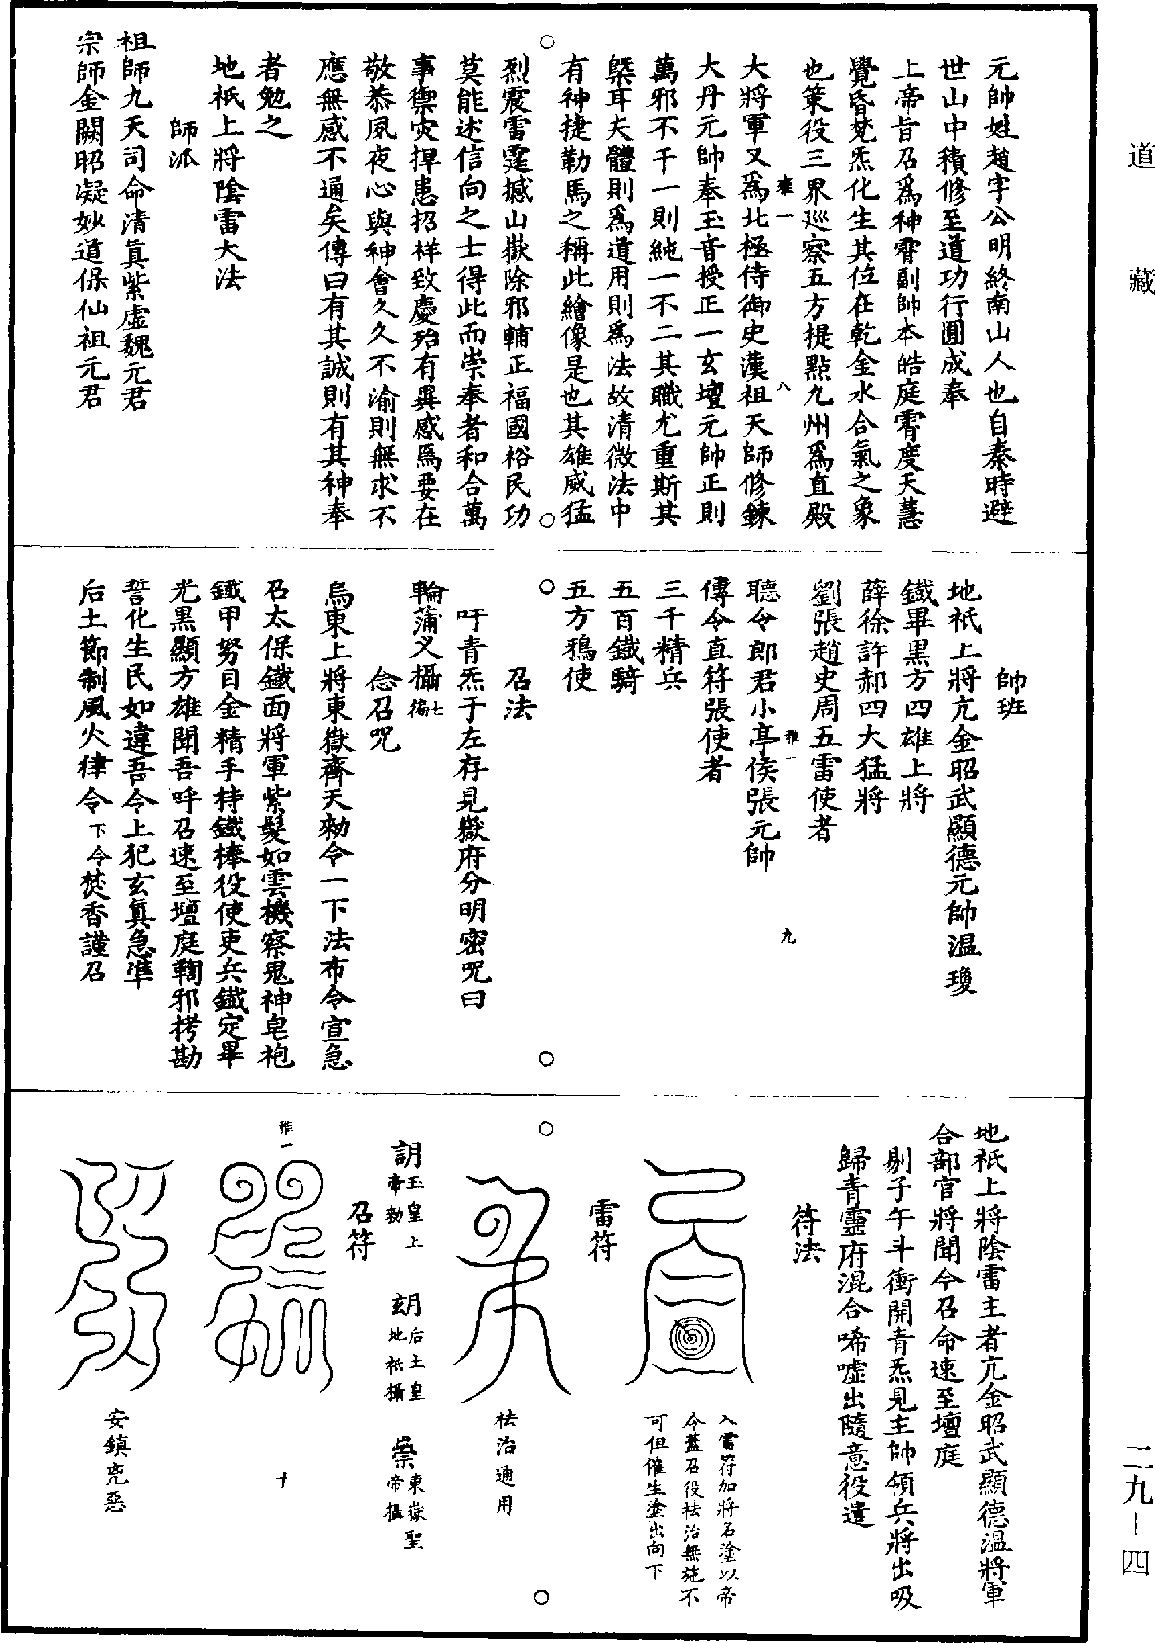 道藏
元帥姓趙字公明終南山人也自秦時避
世山中積修至道功行圓成奉
上帝旨召爲神霄副帥本皓庭霄度天慧
覺昏梵炁化生其位在乾金水合氣之象
也策役三界巡察五方提點九州爲直殿
雅一
八
大將軍又爲北極侍御史漢祖天師修鍊
大丹元帥奉玉音授正一玄壇元帥正則
萬邪不干一則純一不二其職尤重斯其
槩耳夫體則爲道用則爲法故清微法中
有神捷勒馬之稱此繪像是也其雄威猛
烈震雷霆撼山嶽除邪輔正福國裕民功
莫能述信向之士得此而崇奉者和合萬
事禦灾捍患招祥致慶殆有異感焉要在
敬恭夙夜心與神會久久不渝則無求不
應無感不通矣傳曰有其誠則有其神奉
者勉之
地祇上將陰雷大法
師派
祖師九天司命清真紫虛魏元君
宗師金闕昭凝妙道保仙祖元君
帥班
地祇上將亢金昭武顯德元帥溫瓊
鐵畢黑方四雄上將
薛徐許郝四大猛將
劉張趙史周五雷使者
雅一
九
聽令郎君小亭侯張元帥
傳令直符張使者
三千精兵
五百鐵騎
五方鴉使
召法
吁青炁于左存見嶽府分明密咒曰
輪蒲义攝七徧
念召咒
烏東上將東嶽齊天勑令一下法布令宣急
召太保鐵面將軍紫髮如雲機察鬼神皂袍
鐵甲努目金精手持鐵棒役使吏兵鐵定畢
光黑顯方雄聞吾呼召速至壇庭鞫邪拷勘
誓化生民如違吾令上犯玄真急準
后土節制風火律令下令焚香謹召
地祇上將陰雷主者亢金昭武顯德溫將軍
合部官將聞令召命速至壇庭
剔子午斗衝開青炁見主帥領兵將出吸
歸青靈府混合唏噓出隨意役遣
符法
入雷符加將名塗以帝
令蓋召役祛治無施不
可但催生塗出向下
雷符
祛治通用
召符
玉皇上帝勑
后土皇地祇攝
東嶽聖帝攝
雅一
十
安鎮兇惡
二九-四